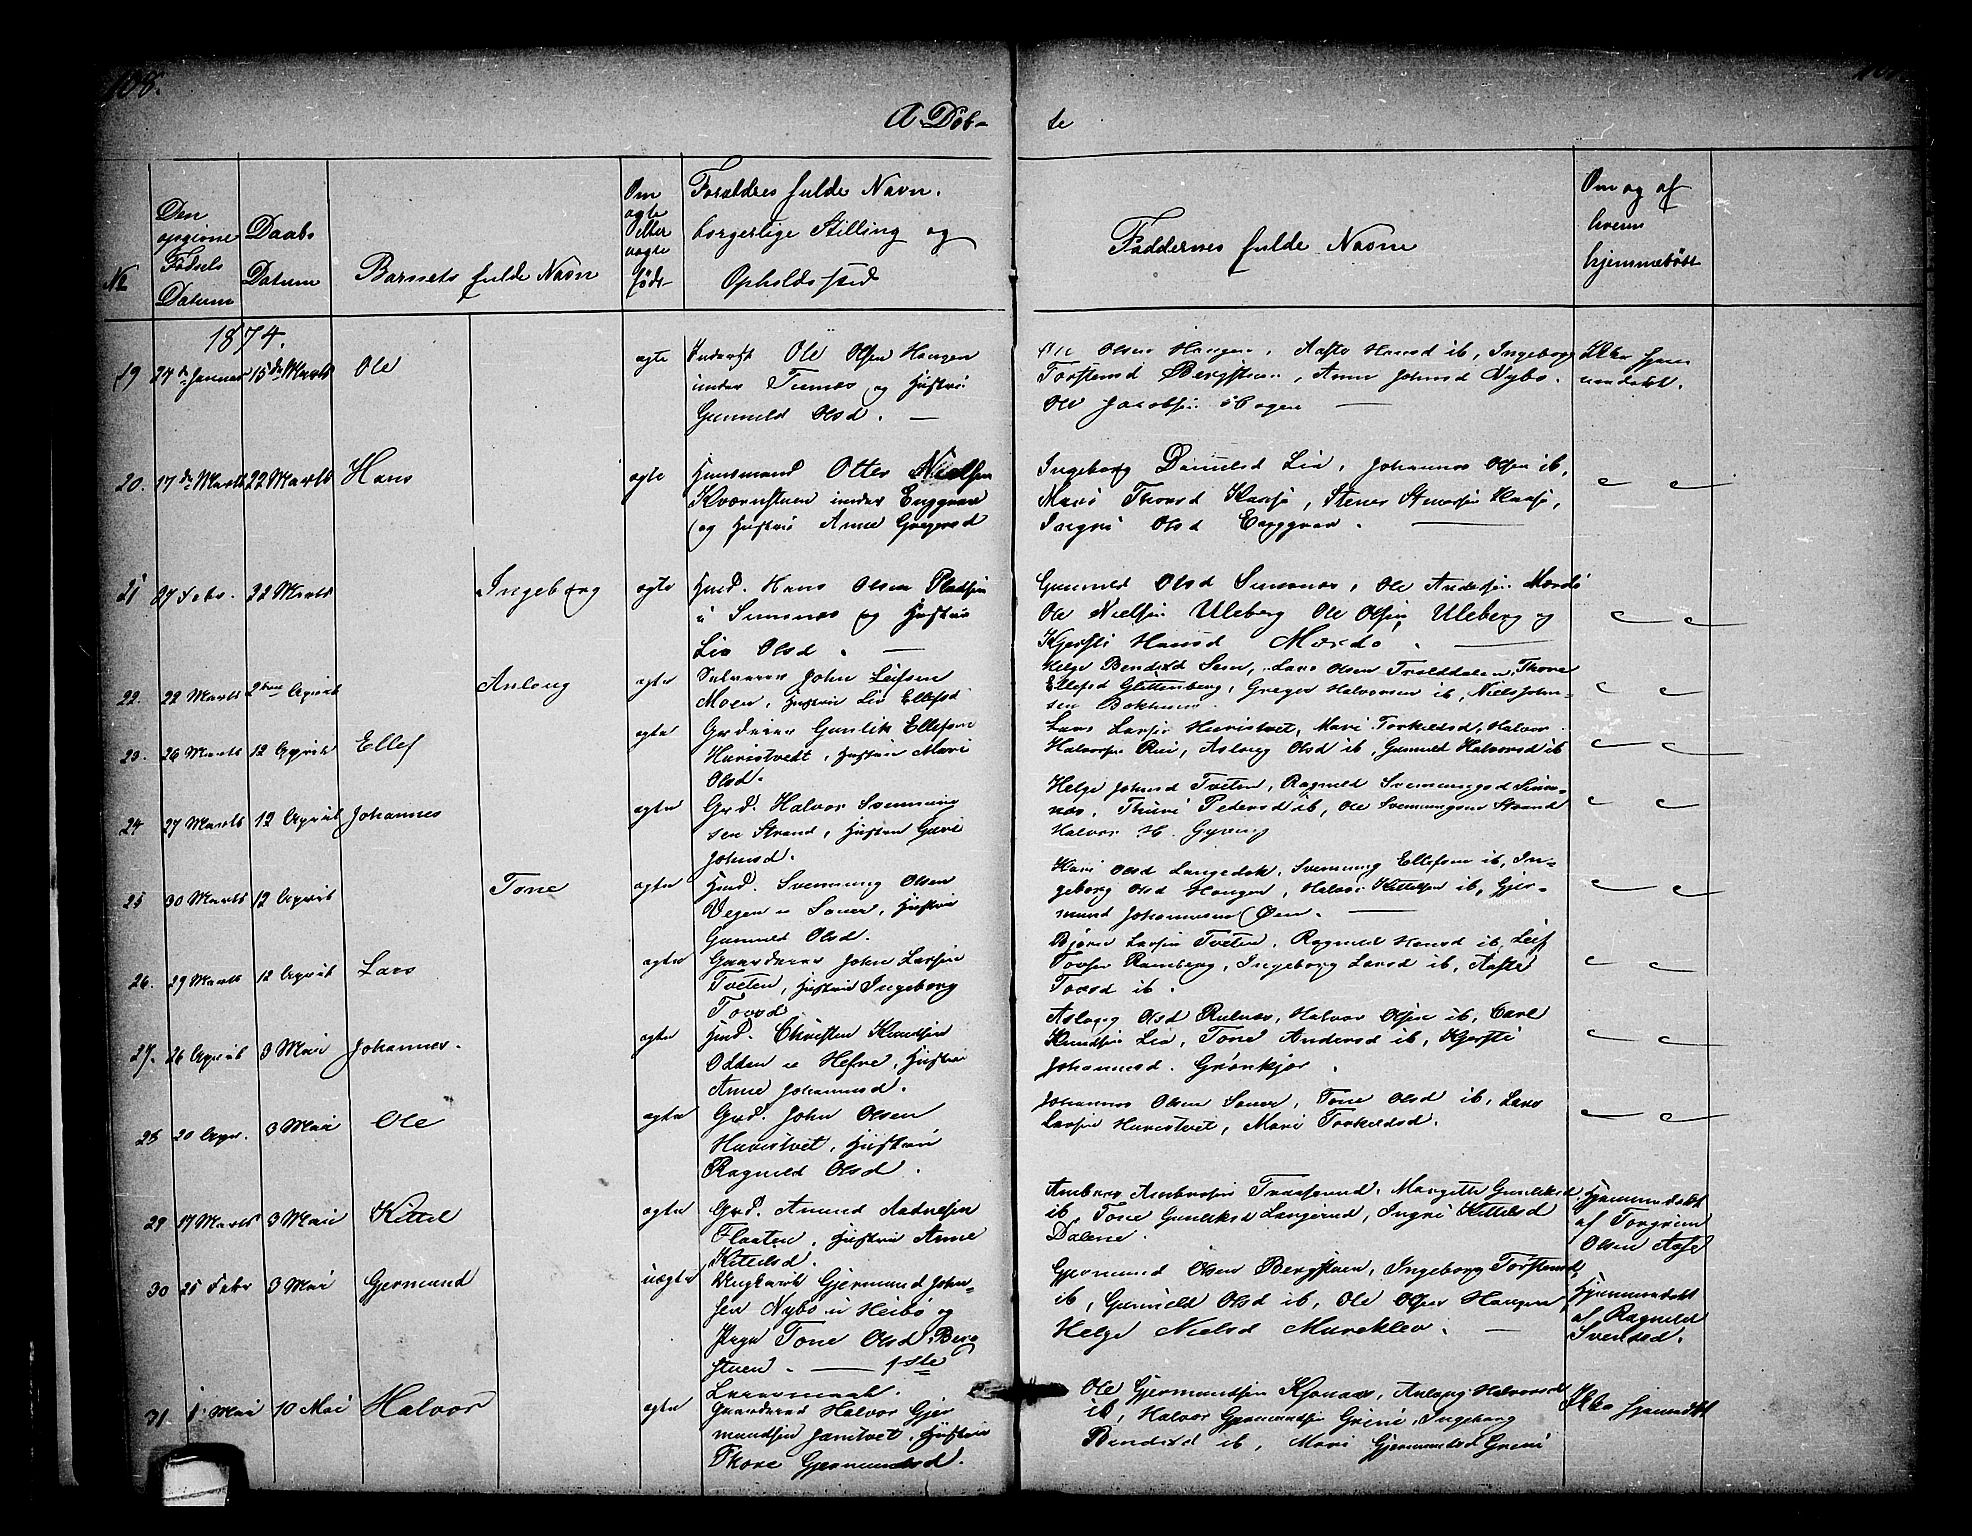 108.
A. Døb-
te
No
Den
opgivne
Fødsels
Datum
Daabs
Datum
Barnets fulde Navn
Om
ægte
eller
uægte
født
Forældres fulde Navn.
borgerlige Stilling og
Opholdssted
Faddernes fulde Navne
Om og af
hvem
hjemmedøbt
1874.
19 27de Januar 15de Marts Ole ægte Inderst Ole Olsen Haugen
under Tunæs og Hustru
Gunnild Olsd.
Ole Olsen Haugen, Aaste Hansd ib, Ingeborg
Torstensd Bergstuen, Anne Johnsd Nybø.
Ole Jacobsen
Ikke hjem
medøbt.
20. 17de Marts 22 Marts Hans ægte Huusmand Otter Nielsen
Kværnstuen under Enggrav
og Hustru Anne Gregersd
Ingeborg Danielsd Lia, Johannes Olsen ib,
Mari Thorsd Kaasa, Stener Stenersen Kaasa,
Ingri Olsd Enggrav.
21 27 Febr. 22 Marts Ingeborg ægte Husd. Hans Olsen Pladsen
u Sumnæs og Hustru
Liv Olsd.
Gunnild Olsd Sumnæs, Ole Andersen Mærdø
Ole Nielsen Uleberg Ole Olsen Uleberg og
Kjersti Hansd Mærdø.
22. 22 Marts April Anlong ægte Selveier John Leifsen
Moen, Hustru Liv Ellefsd
Helge Bendixd Sem, Lars Olsen Trolddalen, Thore
Ellefsd Glittenberg, Greger Halvorsen ib, Niels John-
sen
23. 26 Marts 12 April Ellef ægte Grdeier Gunlik Ellefsen
Huvistvedt, Hustru Mari
Olsd.
Lars Larsen Huvistvet, Mari Torkildsd, Halvor
Halvorsen Rui, Aslaug Olsd ib, Gunnild Halvorsd ib
24 27 Marts 12 April Johannes ægte Grd. Halvor Svennung
sen Strand, Hustru Guri
Johnsd.
Helge Johnsd Tveten, Ragnild Svennungsd Sum-
næs, Thuri Pedersd ib, Ole Svennungsen Strand
Halvor H.
25 30 Marts 12 April Tone ægte Husd. Svennung Olsen
Vegen u Sauer, Hustru
Gunnild Olsd.
Kari Olsd Langedok, Svennung Ellefsen ib, In-
geborg Olsd Haugen, Halvor Kittelsen ib, Gjer-
mund Johannesen Øen.
26. 29 Marts 12 April Lars ægte Gaardeier John Larsen
Tveten, Hustru Ingeborg
Tovsd.
Bjørn Larsen Tveten, Ragnild Hansd ib, Leif
Tovsen Ramberg, Ingeborg Larsd ib, Aaste
Tovsd ib.
27. 26 April 3 Mai Johannes. ægte Husd. Christen Knudsen
Odden u Hefre, Hustru
Anne Johannesd.
Aslaug Olsd Rulnæs, Halvor Olsen ib, Carl
Knudsen Lia, Tone Andersd ib, Kjersti
Johannesd. Grønkjær.
28 20 Apr. 3 Mai Ole ægte Grd. John Olsen
Huvistvet, Hustru
Ragnild Olsd.
Johannes Olsen Sauer, Tone Olsd ib, Lars
Larsen Huvistvet, Mari Torkildsd.
29 17 Marts 3 Mai Kittel ægte Grd. Amund Aadnesen
Flaaten, Hustru Anne
Kittelsd.
Ambros Ambrosen Traaserud, Margith Gunliksd
ib, Tone Gunliksd Langerud, Ingri Kittelsd
Dalene.
Hjemmedøbt
af Torgrim
Olsen Aase
30 25 Febr 3 Mai Gjermund uægte Ungkarl Gjermund John-
sen Nybø u Heibø og
Pige Tone Olsd Berg
stuen. 1ste
Leiermaal.
Gjermund Olsen Bergstuen, Ingeborg Torstensd
ib, Gunnild Olsd ib, Ole Olsen Haugen,
Helge Nielsd Mureklev.
Hjemmedøbt
af Ragnild
Svensd.
31. 1 Mai 10 Mai Halvor ægte Gaardeier Halvor Gjer
mundsen Jæmtvet, Hustru
Thore Gjermundsd.
Ole Gjermundsen Kjonaas, Anlong Halvorsd
ib, Halvor Gjermundsen Greni, Ingeborg
Bendixd ib, Mari Gjermundsd Greni
Ikke hjemmedøbt